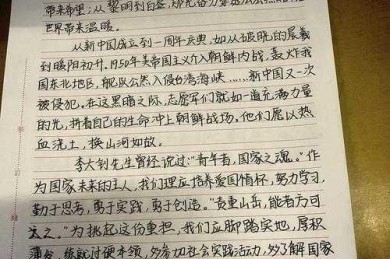 带来希望；从黎明到白昼，
世界带来温暖。
从新中国成立到一周年庆典，如从破晓的晨曦
到暖阳初升。1950年美帝国主义介入朝鲜内战，轰炸我
国东北地区，舰队公然入侵台湾海峡……新中国又一次
被侵犯，在这黑暗之际，志愿军们就如一道充满力量
的光，拼着自己的生命冲上朝鲜战场。他们愿以热
血浇土，换山河如故。
李大钊先生曾经说过："青年者，国家之魂。"作
为国家未来的主人，我们理应培养爱国情怀，努力学习，
勤于思考，勇于实践，勇于创造。"责重山岳，能者方可
当之。"为挑起这份重担，我们应脚踏实地，厚积
薄发，练就过硬本领，多参加社会实践活动，多了解国家